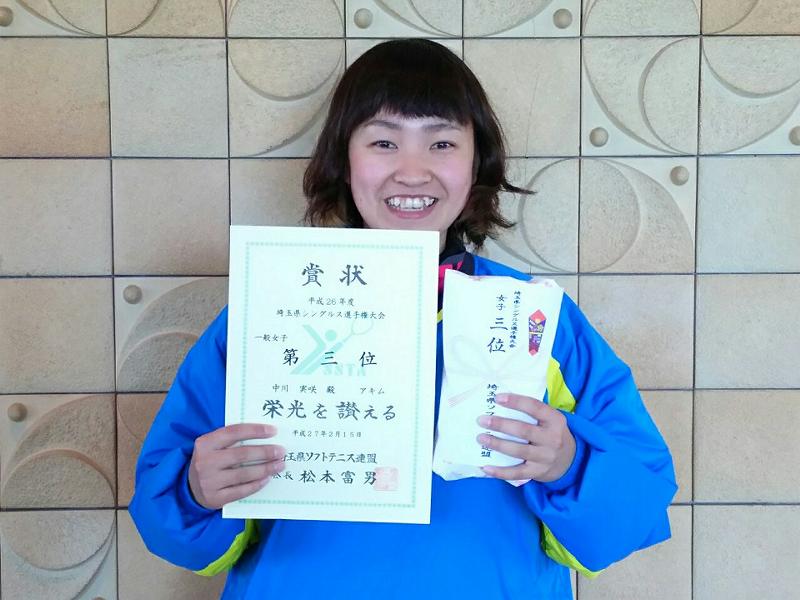 賞状
平成26年度
埼玉県シングルス選手権大会
一般女子
第三位
SSTA
中川 実咲 殿 アキム
栄光を讃える
平成27年2月15日
埼玉県ソフトテニス連盟
会長 松本富男
埼玉県シングルス選手権大会
女子 三位
埼玉県ソフ
連盟